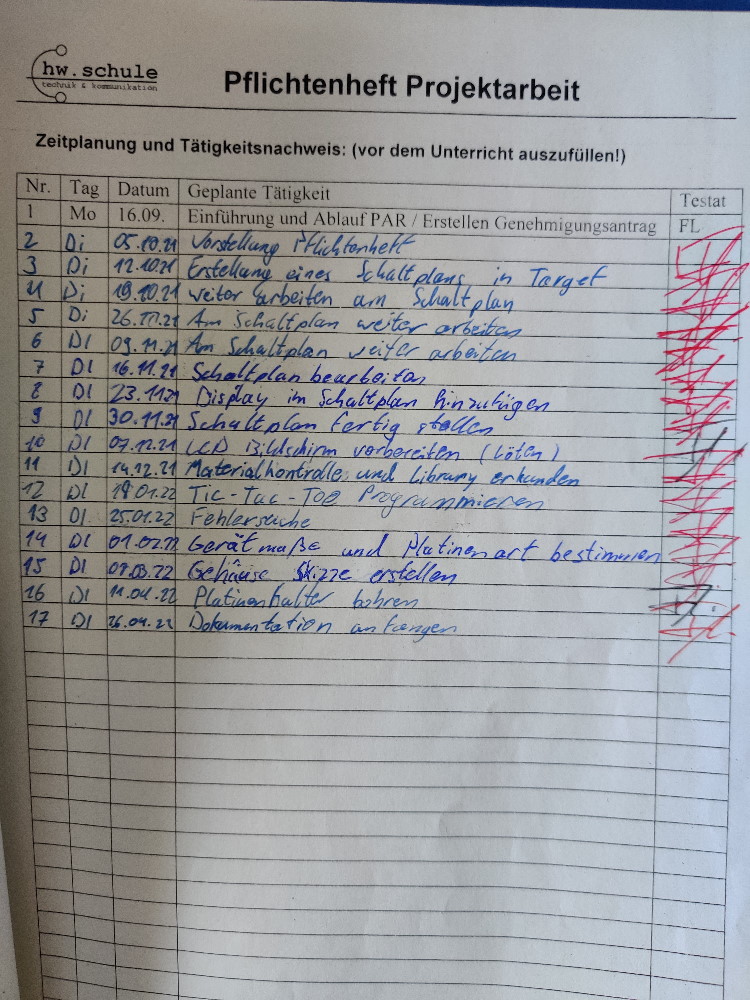 hw.schule
technik & kommunikation
Pflichtenheft Projektarbeit
Zeitplanung und Tätigkeitsnachweis: (vor dem Unterricht auszufüllen!)
Nr. Tag Datum Geplante Tätigkeit Testat
1 Mo 16.09. Einführung und Ablauf PAR / Erstellen Genehmigungsantrag FL
2 Di 05.10.21 Vorstellung Pflichtenheft
3 Di 12.10.21 Erstellung eines Schaltplans in Target
4 Di 19.10.21 weiter arbeiten am Schaltplan
5 Di 26.10.21 Am Schaltplan weiter arbeiten
6 DI 09.11.21 Am Schaltplan weiter arbeiten
7 DI 16.11.21 Schaltplan bearbeiten
8 DI 23.11.21 Display im Schaltplan hinzufügen
9 DI 30.11.21 Schaltplan fertig stellen
10 DI 07.12.21 LCD Bildschirm vorbereiten (Löten)
11 DI 14.12.21 Materialkontrolle und Library erkunden
12 DI 18.01.22 Tic-Tac-Toe Programmieren
13 DI 25.01.22 Fehlersuche
14 DI 01.02.22 Gerätmaße und Platinenart bestimmen
15 DI 01.03.22 Gehäuse Skizze erstellen
16 DI 11.04.22 Platinenhalter bohren
17 DI 26.04.22 Dokumentation anfangen